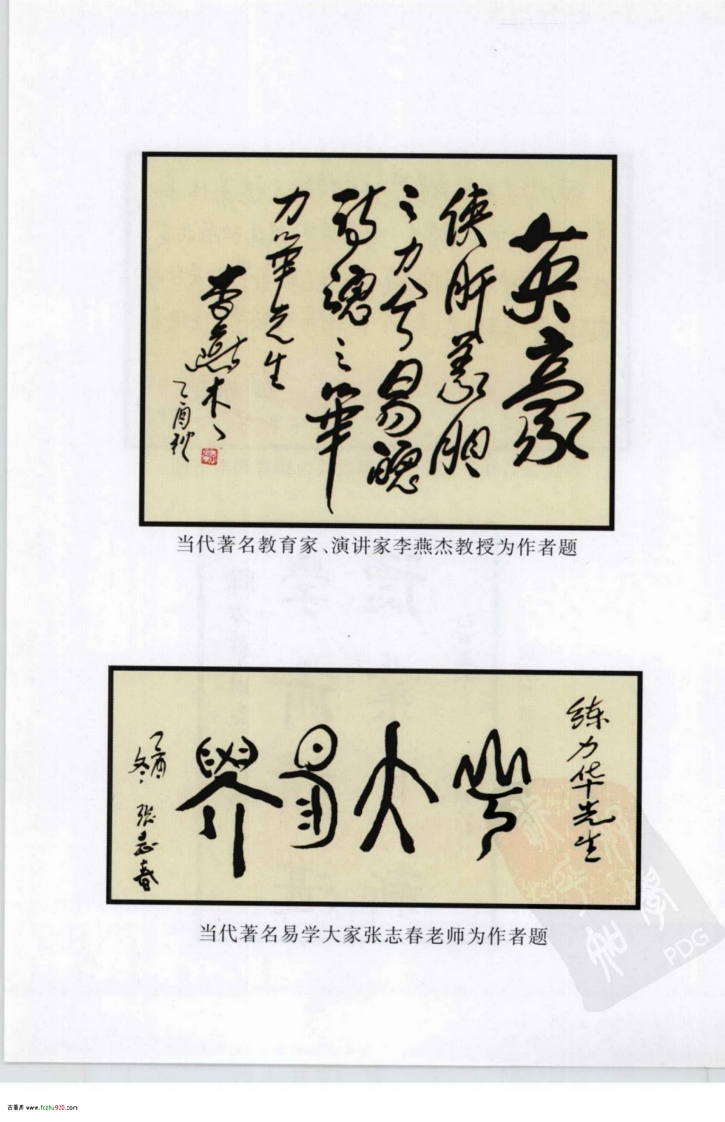 英豪
侠肝义胆
之力兮易魂
诗魂之笔
力华先生
李燕杰
乙酉秋
当代著名教育家、演讲家李燕杰教授为作者题
练力华先生
大易
乙酉
冬 张志春
当代著名易学大家张志春老师为作者题
PDG
古籍库 www.fozhu920.com